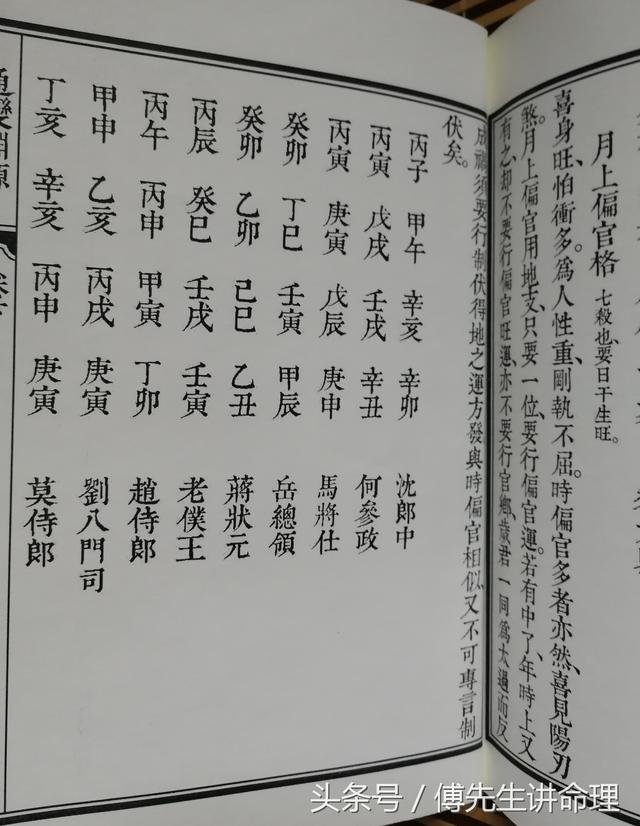 月上偏官格 七殺也、要日干生旺。
喜身旺、怕衝多。為人性重、剛執不屈。時偏官多者亦然、喜見陽刃
煞。月上偏官用地支、只要一位、要行偏官運。若有中了、年時上又
有之、却不要行偏官旺運、亦不要行官鄉、歲君一同為太過、而反
成禍、須要行制伏得地之運方發、與時偏官相似、又不可專言制
伏矣。
丙子 甲午 辛亥 辛卯 沈郎中
丙寅 戊戌 壬戌 辛丑 何參政
丙寅 庚寅 戊辰 庚申 馬將仕
癸卯 丁巳 壬寅 甲辰 岳總領
癸卯 乙卯 己巳 乙丑 蔣狀元
丙辰 癸巳 壬戌 壬寅 老僕王
丙午 丙申 甲寅 丁卯 趙侍郎
甲申 乙亥 丙戌 庚寅 劉八門司
丁亥 辛亥 丙申 庚寅 莫侍郎
头条号 / 傅先生讲命理